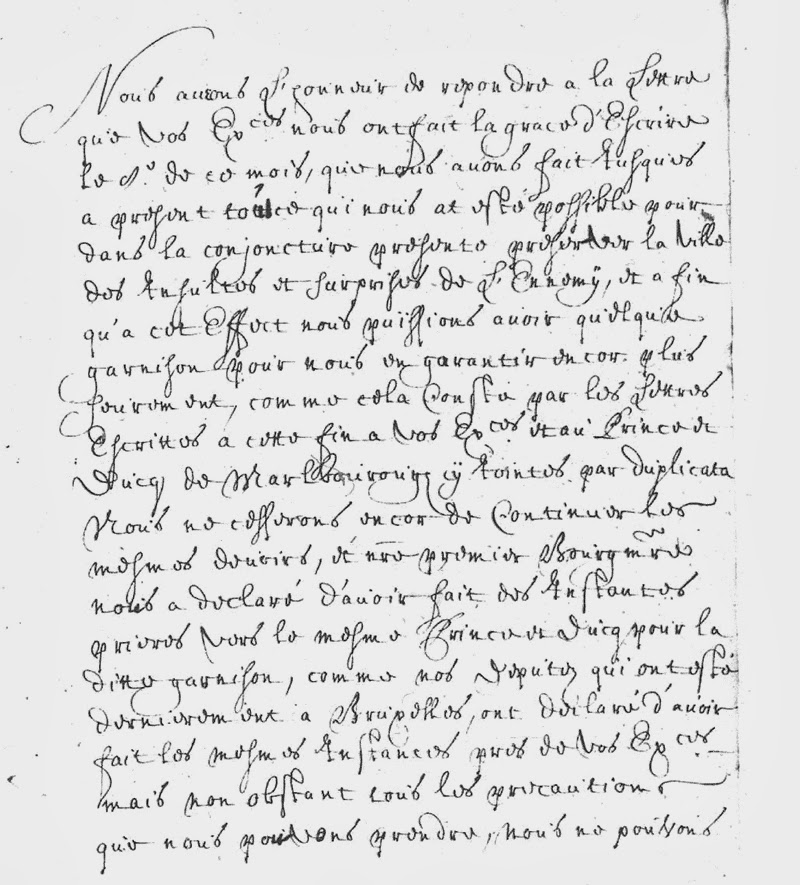 Nous auons L'honneur de repondre a la Lettre
que Vos Ex.ces nous ont fait la grace d'Escrire
le 8.e de ce mois, que nous auons fait Jusques
a present tout ce qui nous at esté possible pour
dans la conjoncture presente preserver la Ville
des Insultes et surprises de L'Ennemÿ, et a fin
qu'a cet Effect nous puissions auoir quelque
garnison pour nous en garantir encor plus
seurement, comme cela Conste par les Lettres
Escrittes a cette fin a Vos Ex.ces et au Prince et
Ducq de Marlbourourg cÿ Iointes par duplicata
Nous ne cesserons encor de Continuer les
mesmes deuoirs, et nre premier Bourgmre
nous a declaré d'auoir fait des Instantes
prieres Vers le mesme Prince et Ducq pour la
ditte garnison, comme nos Deputez qui ont esté
dernierement a Bruxelles, ont declaré d'auoir
fait les mesmes Instances pres de Vos Ex.ces
mais non obstant tous les precautions
que nous pouvons prendre, nous ne pouvons